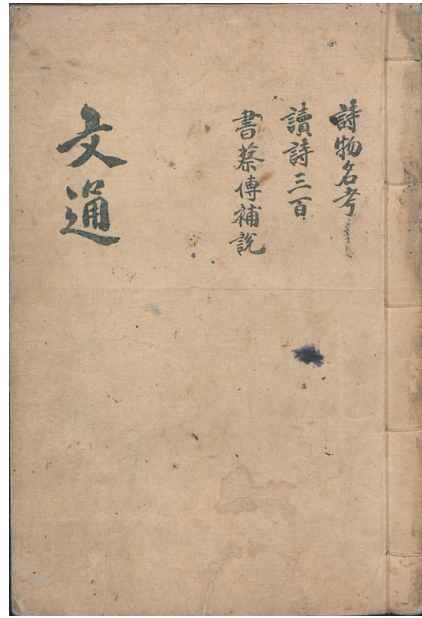 詩物名考
讀詩三百
書蔡傳補說
文通